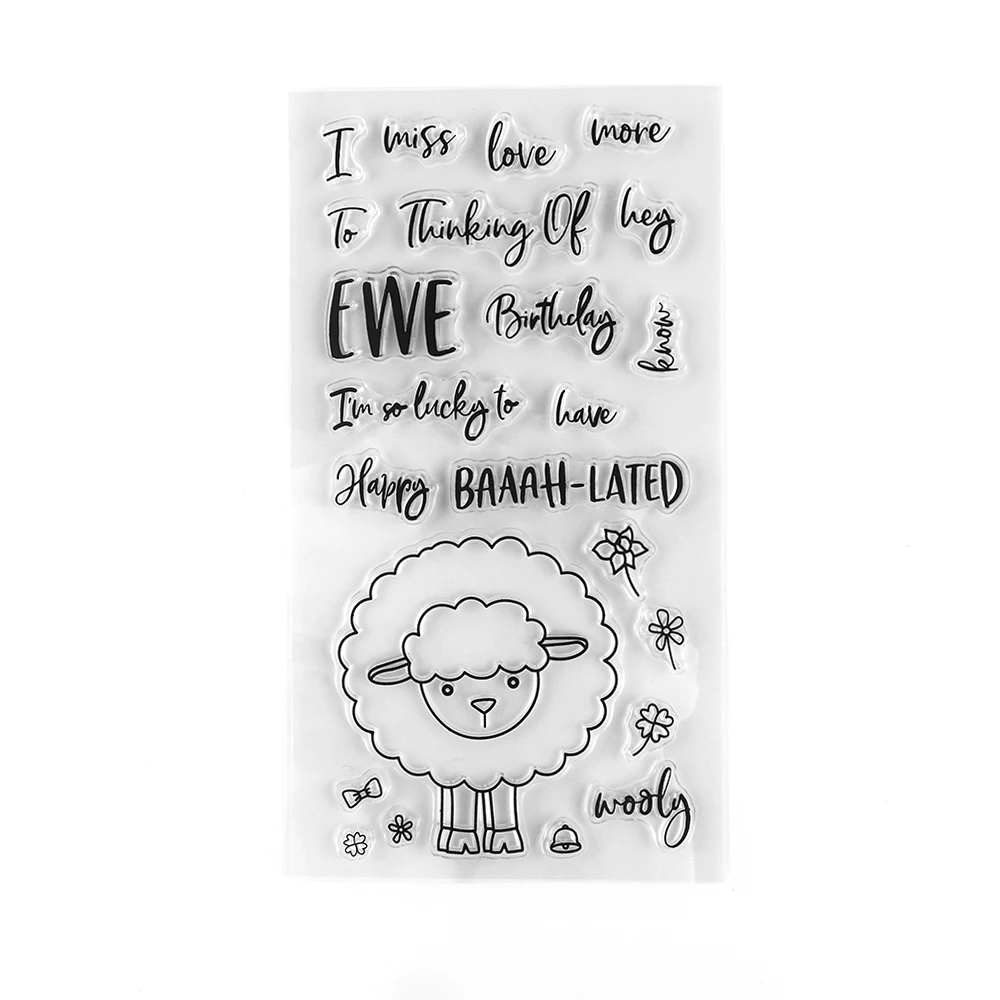 I miss love more
To Thinking Of hey
EWE Birthday know
I'm so lucky to have
Happy BAAAH-LATED
wooly